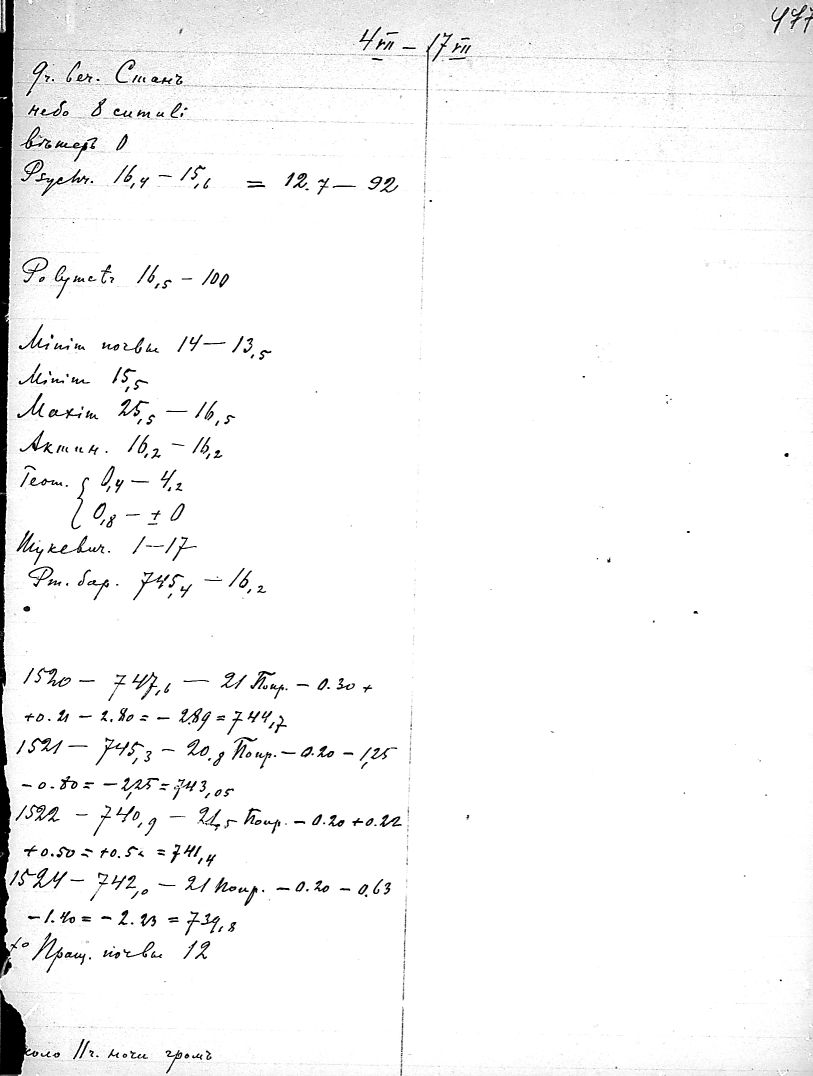 477
4 VII – 17 VII
9ч. веч. Станъ
небо 8 cumuli
вѣтеръ 0
Psychr. 16,4 – 15,6 = 12.7 – 92
Polymetr 16,5 – 100
Minim почвы 14 – 13,5
Minim 15,5
Maxim 25,5 – 16,5
Актин. 16,2 – 16,2
Геот. { 0,4 – 4,2
{ 0,8 – ± 0
Шукевич. 1 – 17
Рт. бар. 745,4 – 16,2
1520 – 747,6 – 21 Попр. – 0.30 +
+0.21 – 2.80 = – 2.89 = 744,7
1521 – 745,3 – 20.8 Попр. – 0.20 – 1,25
– 0.80 = – 2,25 = 743,05
1522 – 740,9 – 21,5 Попр. – 0.20 + 0.22
+ 0.50 = +0.52 = 741,4
1524 – 742,0 – 21 Попр. – 0.20 – 0.63
– 1.40 = – 2.23 = 739,8
t° Пращ. почвы 12
коло 11ч. ночи громъ